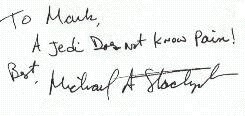 To Mark,
A Jedi Does Not Know Pain!
Best,
Michael A